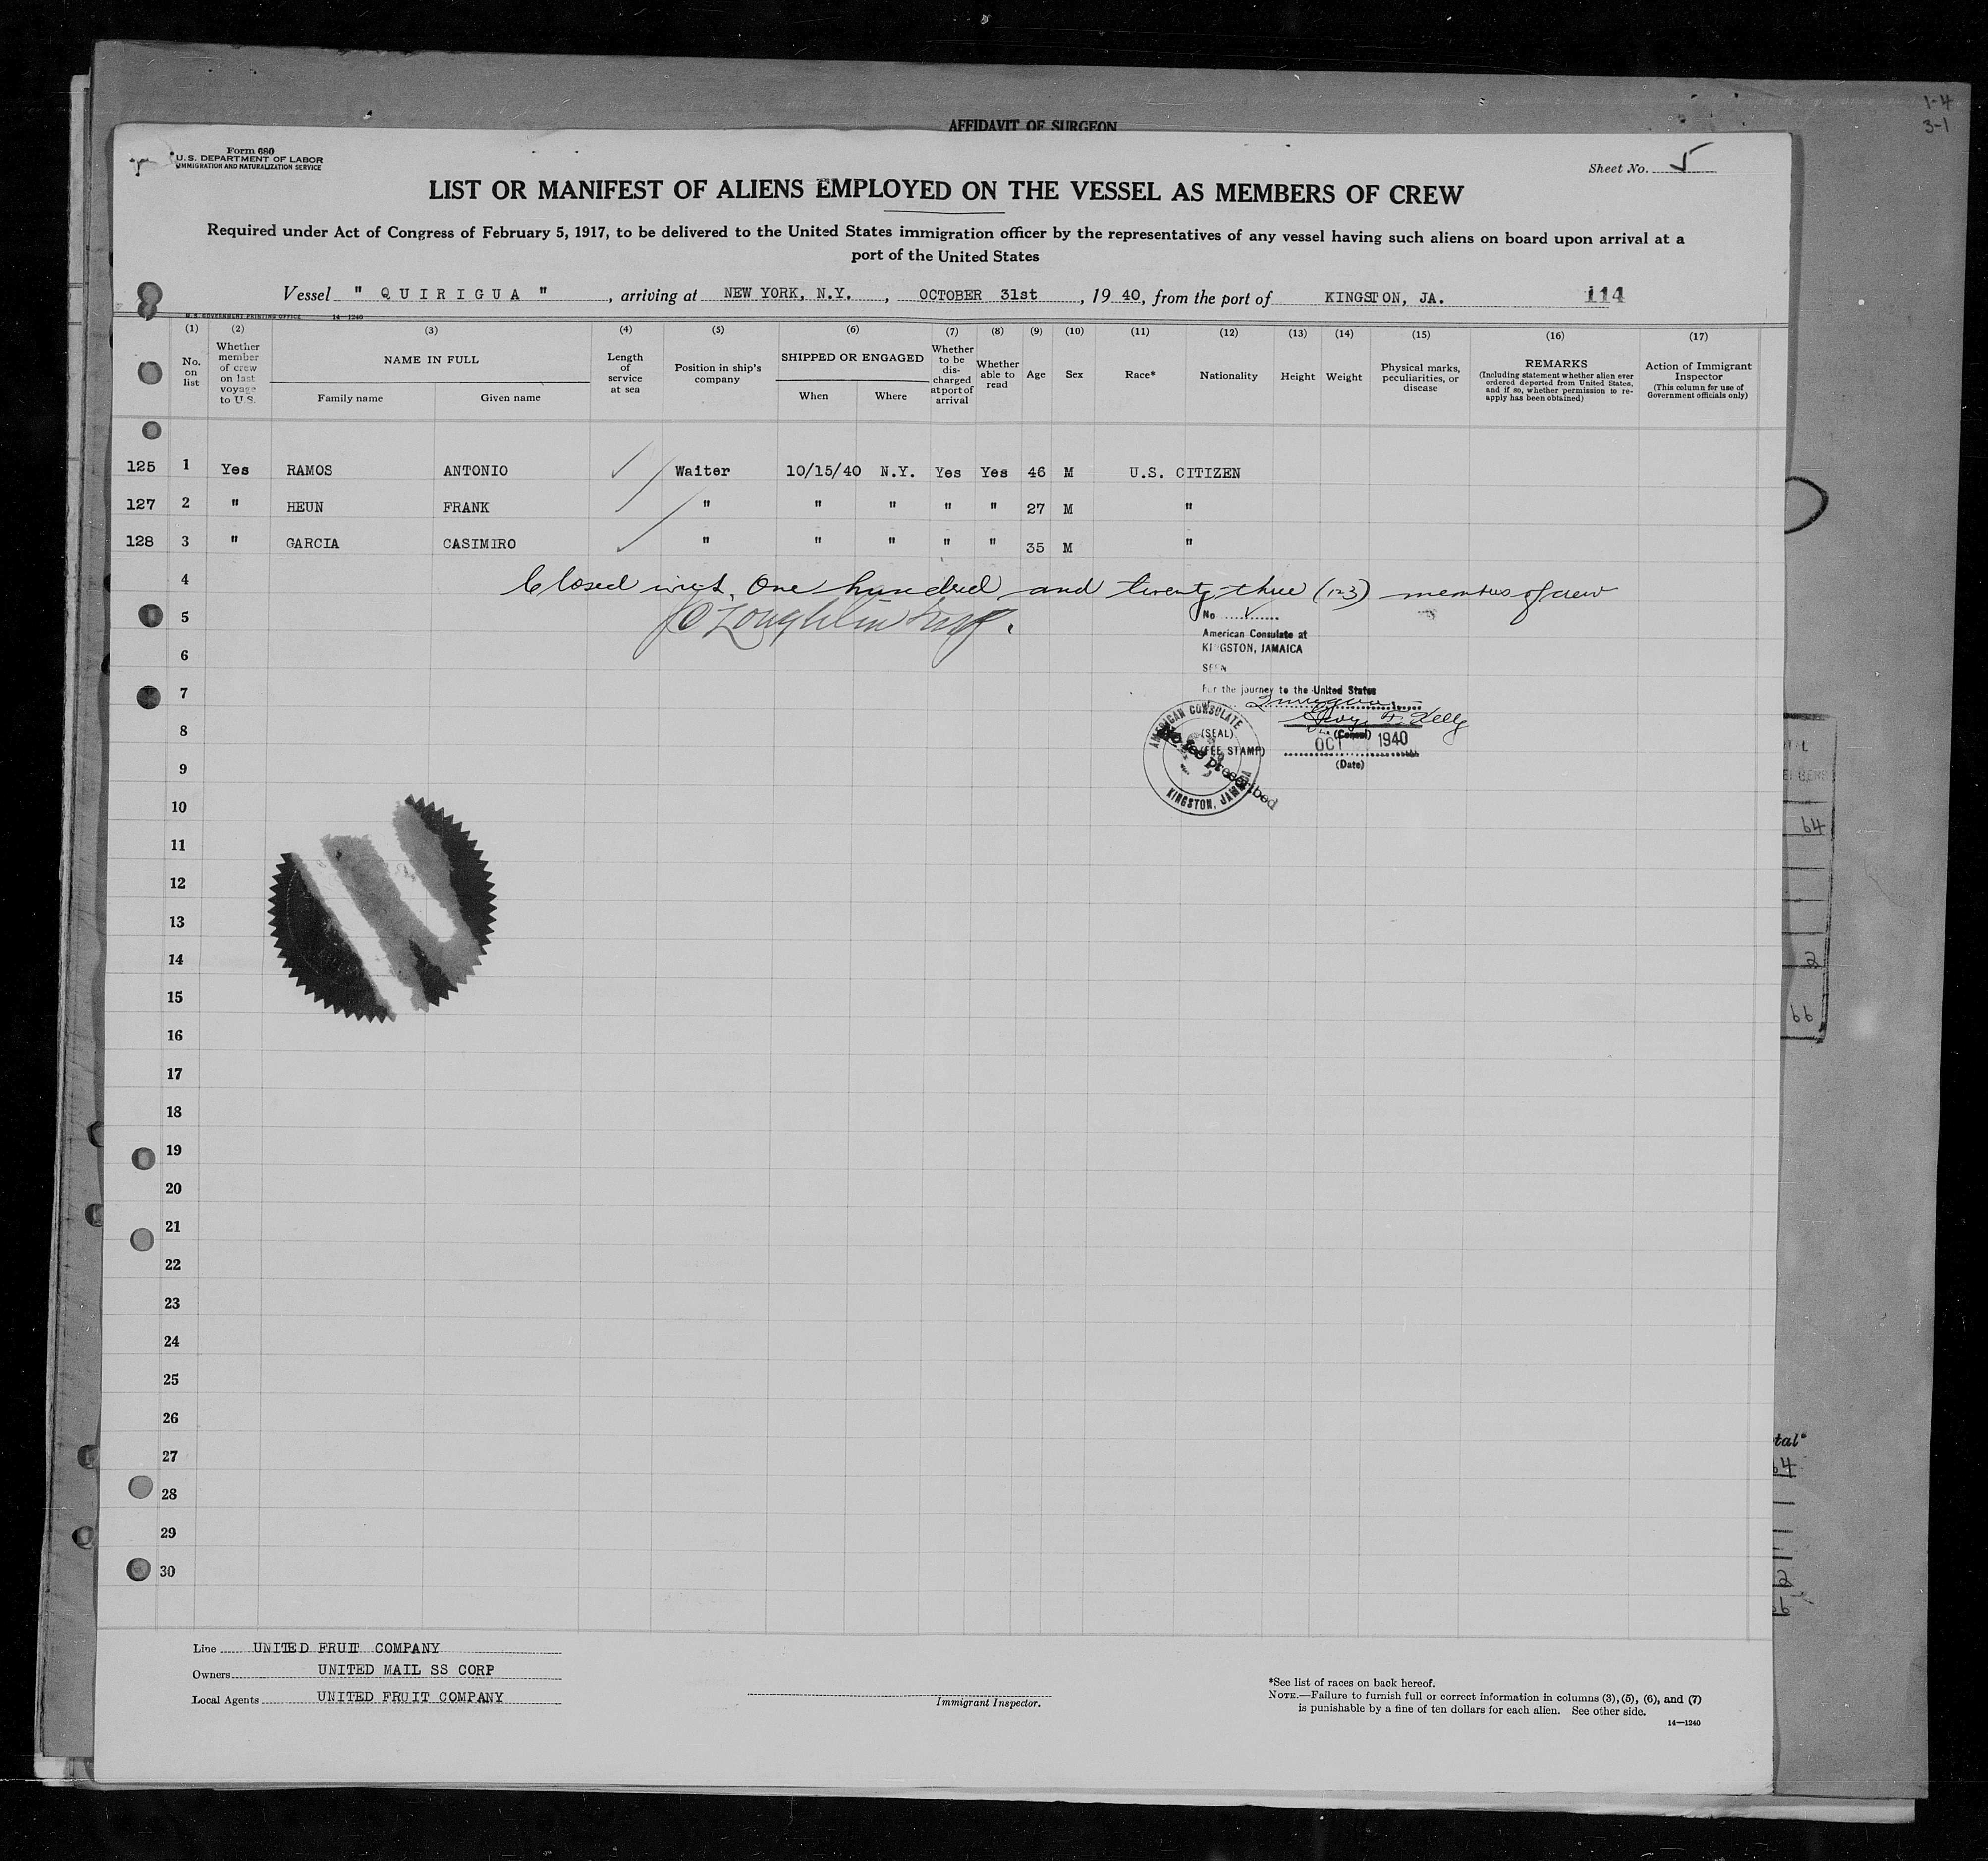 1-4
3-1
AFFIDAVIT OF SURGEON
Form 680
U.S. DEPARTMENT OF LABOR
IMMIGRATION AND NATURALIZATION SERVICE
Sheet No. 5
LIST OR MANIFEST OF ALIENS EMPLOYED ON THE VESSEL AS MEMBERS OF CREW
Required under Act of Congress of February 5, 1917, to be delivered to the United States immigration officer by the representatives of any vessel having such aliens on board upon arrival at a
port of the United States
Vessel " QUIRIGUA ", arriving at NEW YORK, N.Y., OCTOBER 31st, 1940, from the port of KINGSTON, JA. 114
U.S. GOVERNMENT PRINTING OFFICE 14—1240
(1) (2) (3) (4) (5) (6) (7) (8) (9) (10) (11) (12) (13) (14) (15) (16) (17)
No. on list
Whether member of crew on last voyage to U.S.
NAME IN FULL
Family name Given name
Length of service at sea
Position in ship's company
SHIPPED OR ENGAGED
When Where
Whether to be discharged at port of arrival
Whether able to read
Age
Sex
Race*
Nationality
Height
Weight
Physical marks, peculiarities, or disease
REMARKS
(Including statement whether alien ever ordered deported from United States, and if so, whether permission to re-apply has been obtained)
Action of Immigrant Inspector
(This column for use of Government officials only)
125 1 Yes RAMOS ANTONIO ✓ Waiter 10/15/40 N.Y. Yes Yes 46 M U.S. CITIZEN
127 2 " HEUN FRANK ✓ " " " " " 27 M "
128 3 " GARCIA CASIMIRO ✓ " " " " " 35 M "
4 Closed with One hundred and twenty-three (123) members of crew
5
6
7
8
9
10
11
12
13
14
15
16
17
18
19
20
21
22
23
24
25
26
27
28
29
30
No
American Consulate at
KINGSTON, JAMAICA
SEEN
For the journey to the United States
(Consul)
OCT 1940
(Date)
AMERICAN CONSULATE
(SEAL)
(FEE STAMP)
No fee prescribed
KINGSTON, JAMAICA
64
2
66
Line UNITED FRUIT COMPANY
Owners UNITED MAIL SS CORP
Local Agents UNITED FRUIT COMPANY
Immigrant Inspector.
*See list of races on back hereof.
NOTE.—Failure to furnish full or correct information in columns (3), (5), (6), and (7)
is punishable by a fine of ten dollars for each alien. See other side.
14—1240